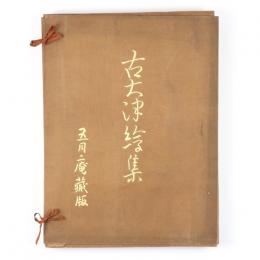 古大津絵集
五月庵藏版